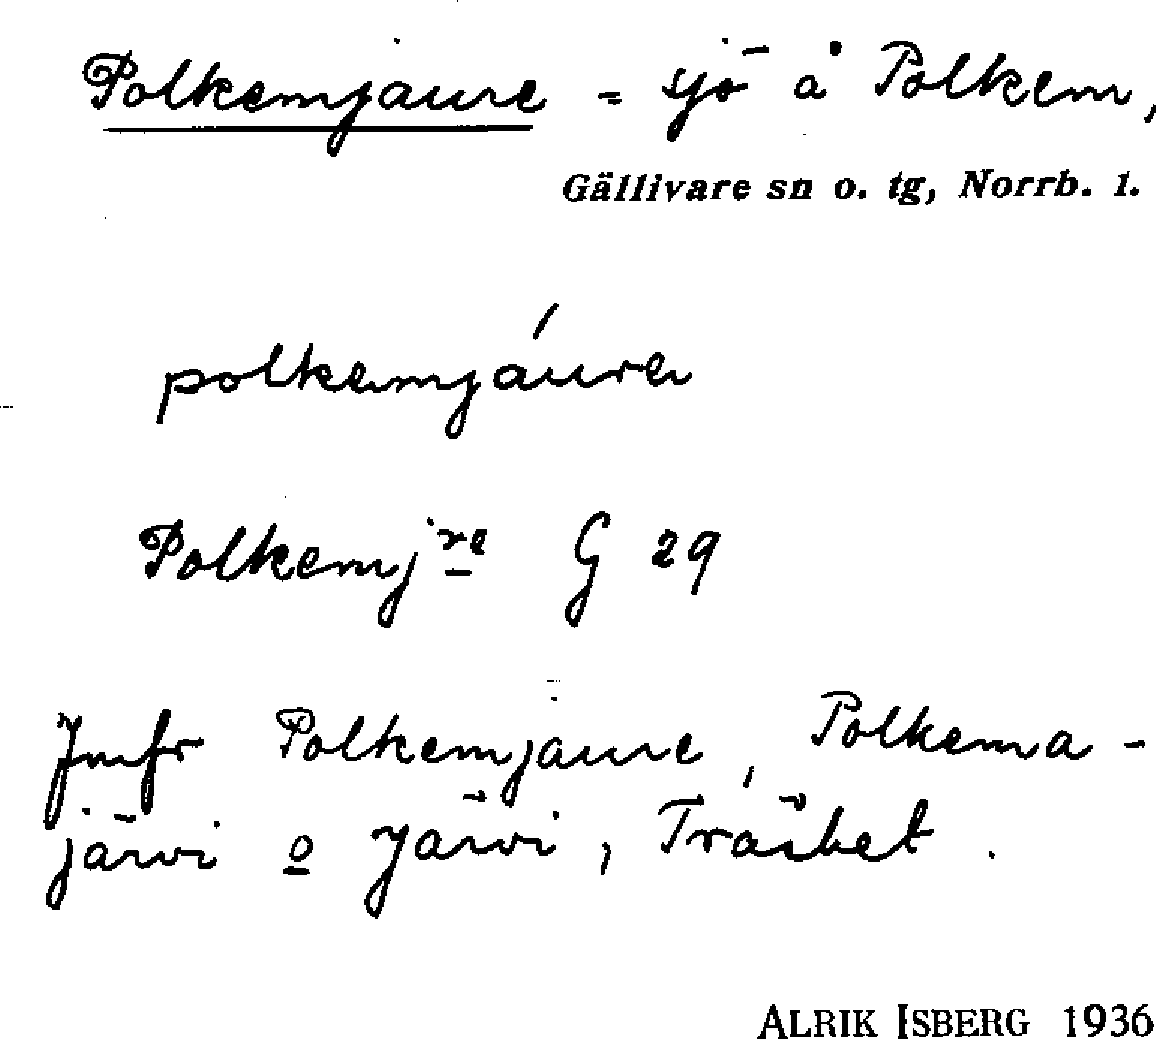 Polkemjaure = sjö å Polkem,
Gällivare sn o. tg, Norrb. l.
polkemjáure
Polkemjre G 29
Jmfr Polkemjaure, Polkema-
järvi o Järvi, Träsket.
ALRIK ISBERG 1936